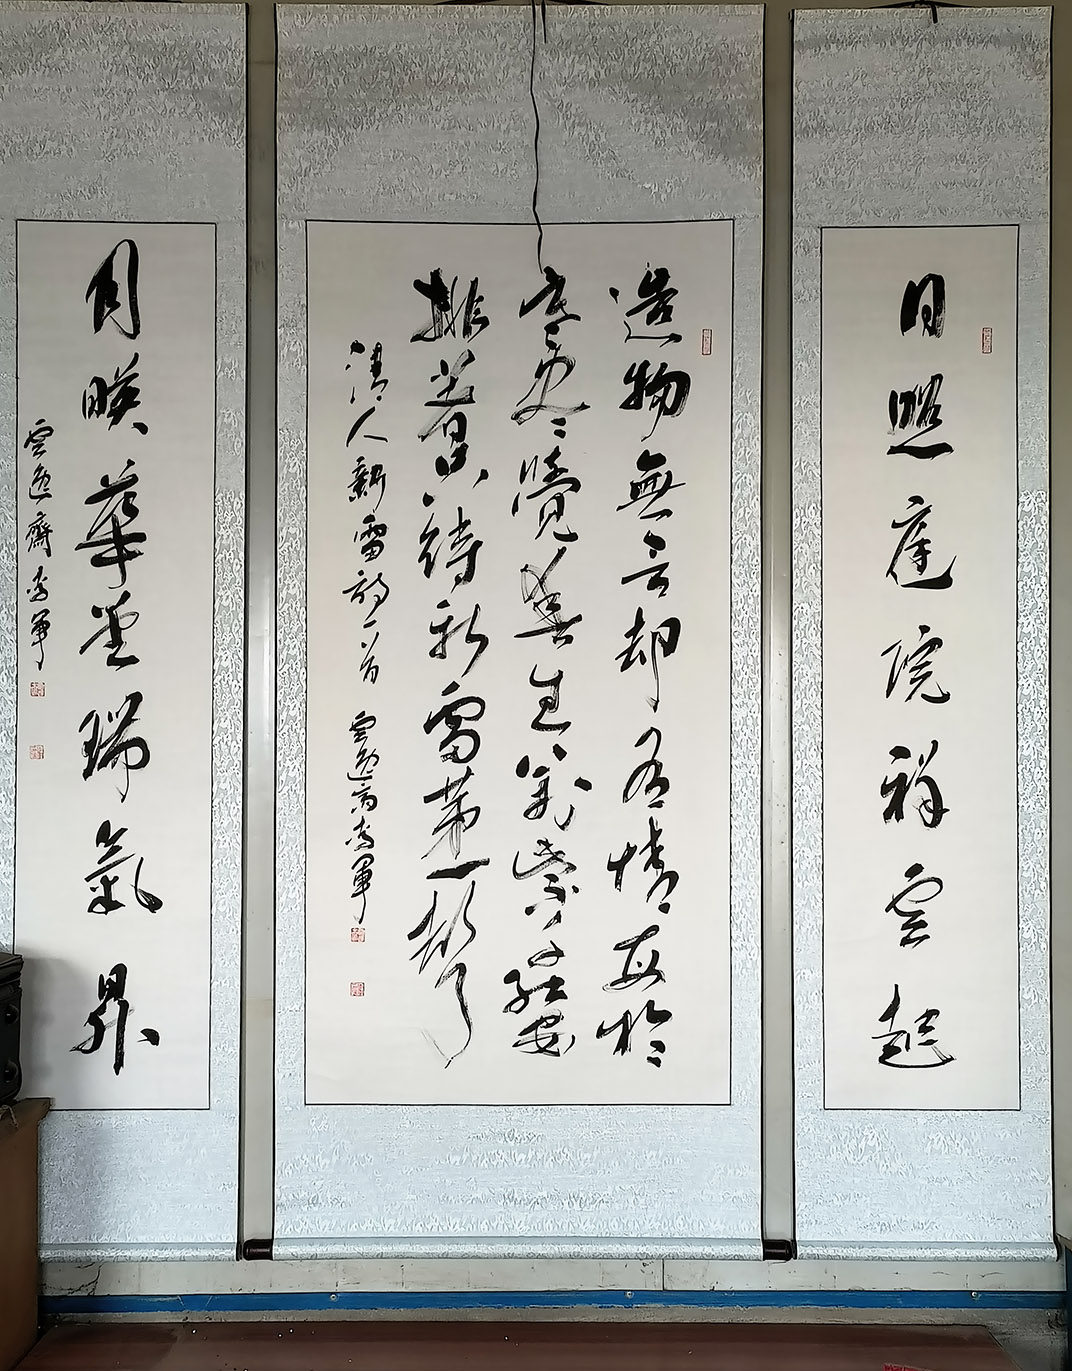 日照庭院祥雲起
造物無言却有情每於
寒盡覺春生萬紫千紅安
排着只待新雷第一聲
清人新雷詩一首 雲逸齋李軍
月暎華堂瑞氣昇
雲逸齋李軍